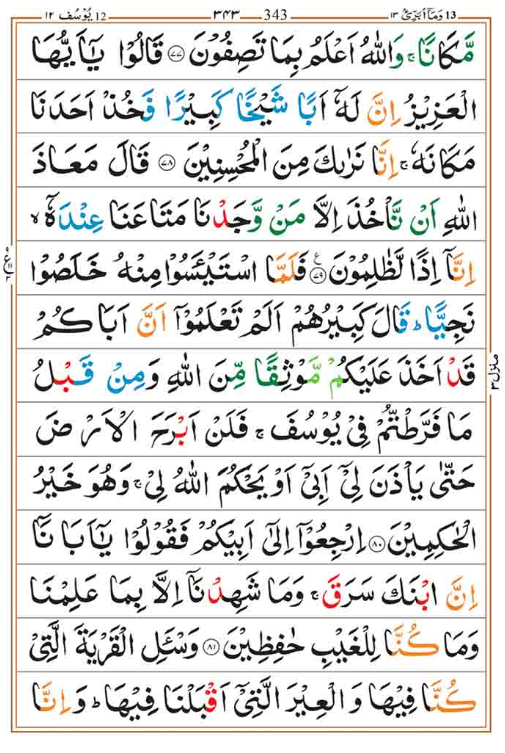 13 وَمَآ اُبَرِّئُ ۱۳ ۳۴۳ 343 12 يُوْسُف ۱۲
مَّكَانًا ۚ وَاللّٰهُ اَعْلَمُ بِمَا تَصِفُوْنَ ﴿۷۷﴾ قَالُوْا يٰۤاَيُّهَا
الْعَزِيْزُ اِنَّ لَهٗۤ اَبًا شَيْخًا كَبِيْرًا فَخُذْ اَحَدَنَا
مَكَانَهٗ ۚ اِنَّا نَرٰٮكَ مِنَ الْمُحْسِنِيْنَ ﴿۷۸﴾ قَالَ مَعَاذَ
اللّٰهِ اَنْ نَّاْخُذَ اِلَّا مَنْ وَّجَدْنَا مَتَاعَنَا عِنْدَهٗۤ ۙ
اِنَّاۤ اِذًا لَّظٰلِمُوْنَ ﴿۷۹﴾ ع فَلَمَّا اسْتَيْئَسُوْا مِنْهُ خَلَصُوْا
نَجِيًّا ؕ قَالَ كَبِيْرُهُمْ اَلَمْ تَعْلَمُوْۤا اَنَّ اَبَاكُمْ
قَدْ اَخَذَ عَلَيْكُمْ مَّوْثِقًا مِّنَ اللّٰهِ وَمِنْ قَبْلُ
مَا فَرَّطْتُّمْ فِيْ يُوْسُفَ ۚ فَلَنْ اَبْرَحَ الْاَرْضَ
حَتّٰى يَاْذَنَ لِيْۤ اَبِيْۤ اَوْ يَحْكُمَ اللّٰهُ لِيْ ۚ وَهُوَ خَيْرُ
الْحٰكِمِيْنَ ﴿۸۰﴾ اِرْجِعُوْۤا اِلٰٓى اَبِيْكُمْ فَقُوْلُوْا يٰۤاَبَانَاۤ
اِنَّ ابْنَكَ سَرَقَ ۚ وَمَا شَهِدْنَاۤ اِلَّا بِمَا عَلِمْنَا
وَمَا كُنَّا لِلْغَيْبِ حٰفِظِيْنَ ﴿۸۱﴾ وَسْـَٔلِ الْقَرْيَةَ الَّتِيْ
كُنَّا فِيْهَا وَالْعِيْرَ الَّتِيْۤ اَقْبَلْنَا فِيْهَا ؕ وَاِنَّا